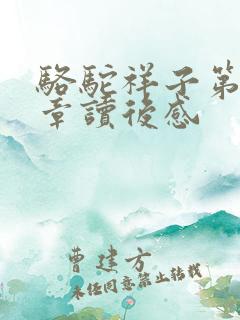 駱駝祥子第
章讀後感
曹建方
未經同意禁止轉載